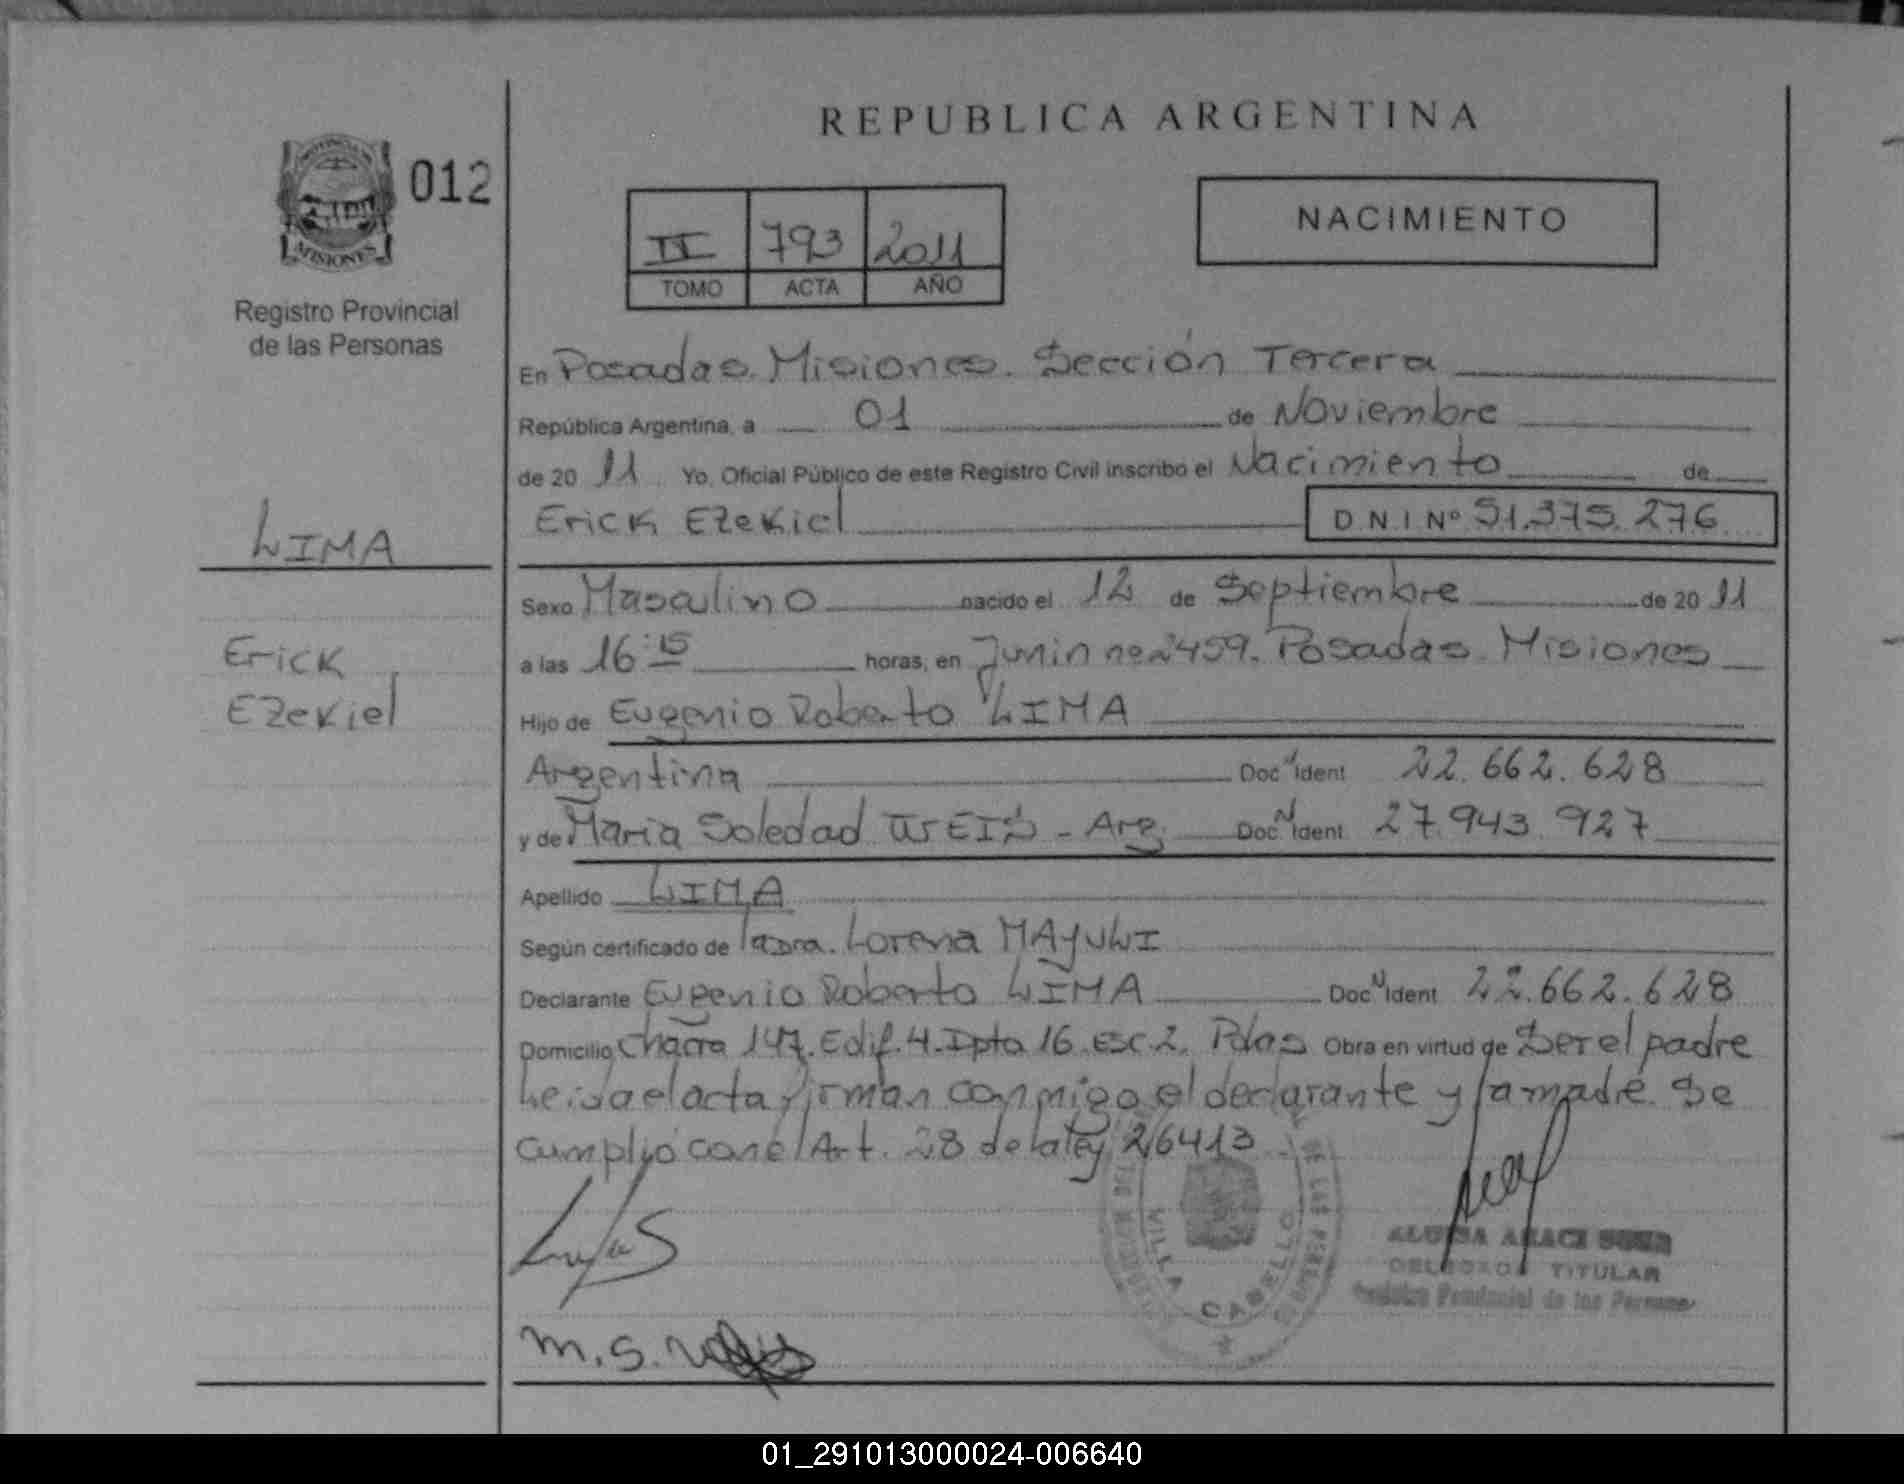 REPUBLICA ARGENTINA
PROVINCIA DE
MISIONES
012
Registro Provincial
de las Personas
II 793 2011
TOMO ACTA AÑO
NACIMIENTO
En Posadas. Misiones. Sección Tercera
República Argentina, a 01 de Noviembre
de 20 11 Yo, Oficial Público de este Registro Civil inscribo el Nacimiento de
Erick Ezekiel D.N.I Nº 51.375.276
LIMA
Sexo Masculino nacido el 12 de Septiembre de 20 11
Erick
a las 16:15 horas, en Junin nº 2459. Posadas. Misiones
Ezekiel
Hijo de Eugenio Roberto LIMA
Argentina Doc N Ident 22.662.628
y de Maria Soledad WEIS - Arg. Doc. N Ident. 27.943.927
Apellido LIMA
Según certificado de la Dra. Lorena MAYULI
Declarante Eugenio Roberto LIMA Doc N Ident 22.662.628
Domicilio Chacra 147. Edif. 4. Dpto 16. Esc. 2. Pdas Obra en virtud de Ser el padre
Leida el acta firman conmigo el declarante y la madre. Se
cumplió con el Art. 28 de la ley 26413
DE LAS PERSONAS
VILLA CABELLO
TITULAR
Registro Provincial de las Personas
M. S.
01_291013000024-006640